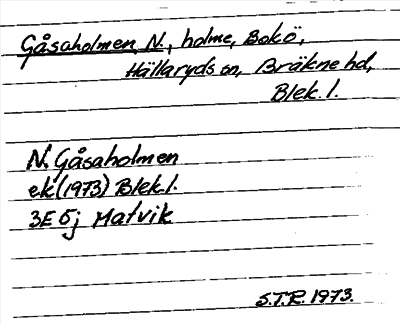 Gåsaholmen, N., holme, Bokö,
Hällaryds sn, Bräkne hd,
Blek. l.
N. Gåsaholmen
ek (1973) Blek. l.
3E 5j Matvik
S.T.R. 1973.